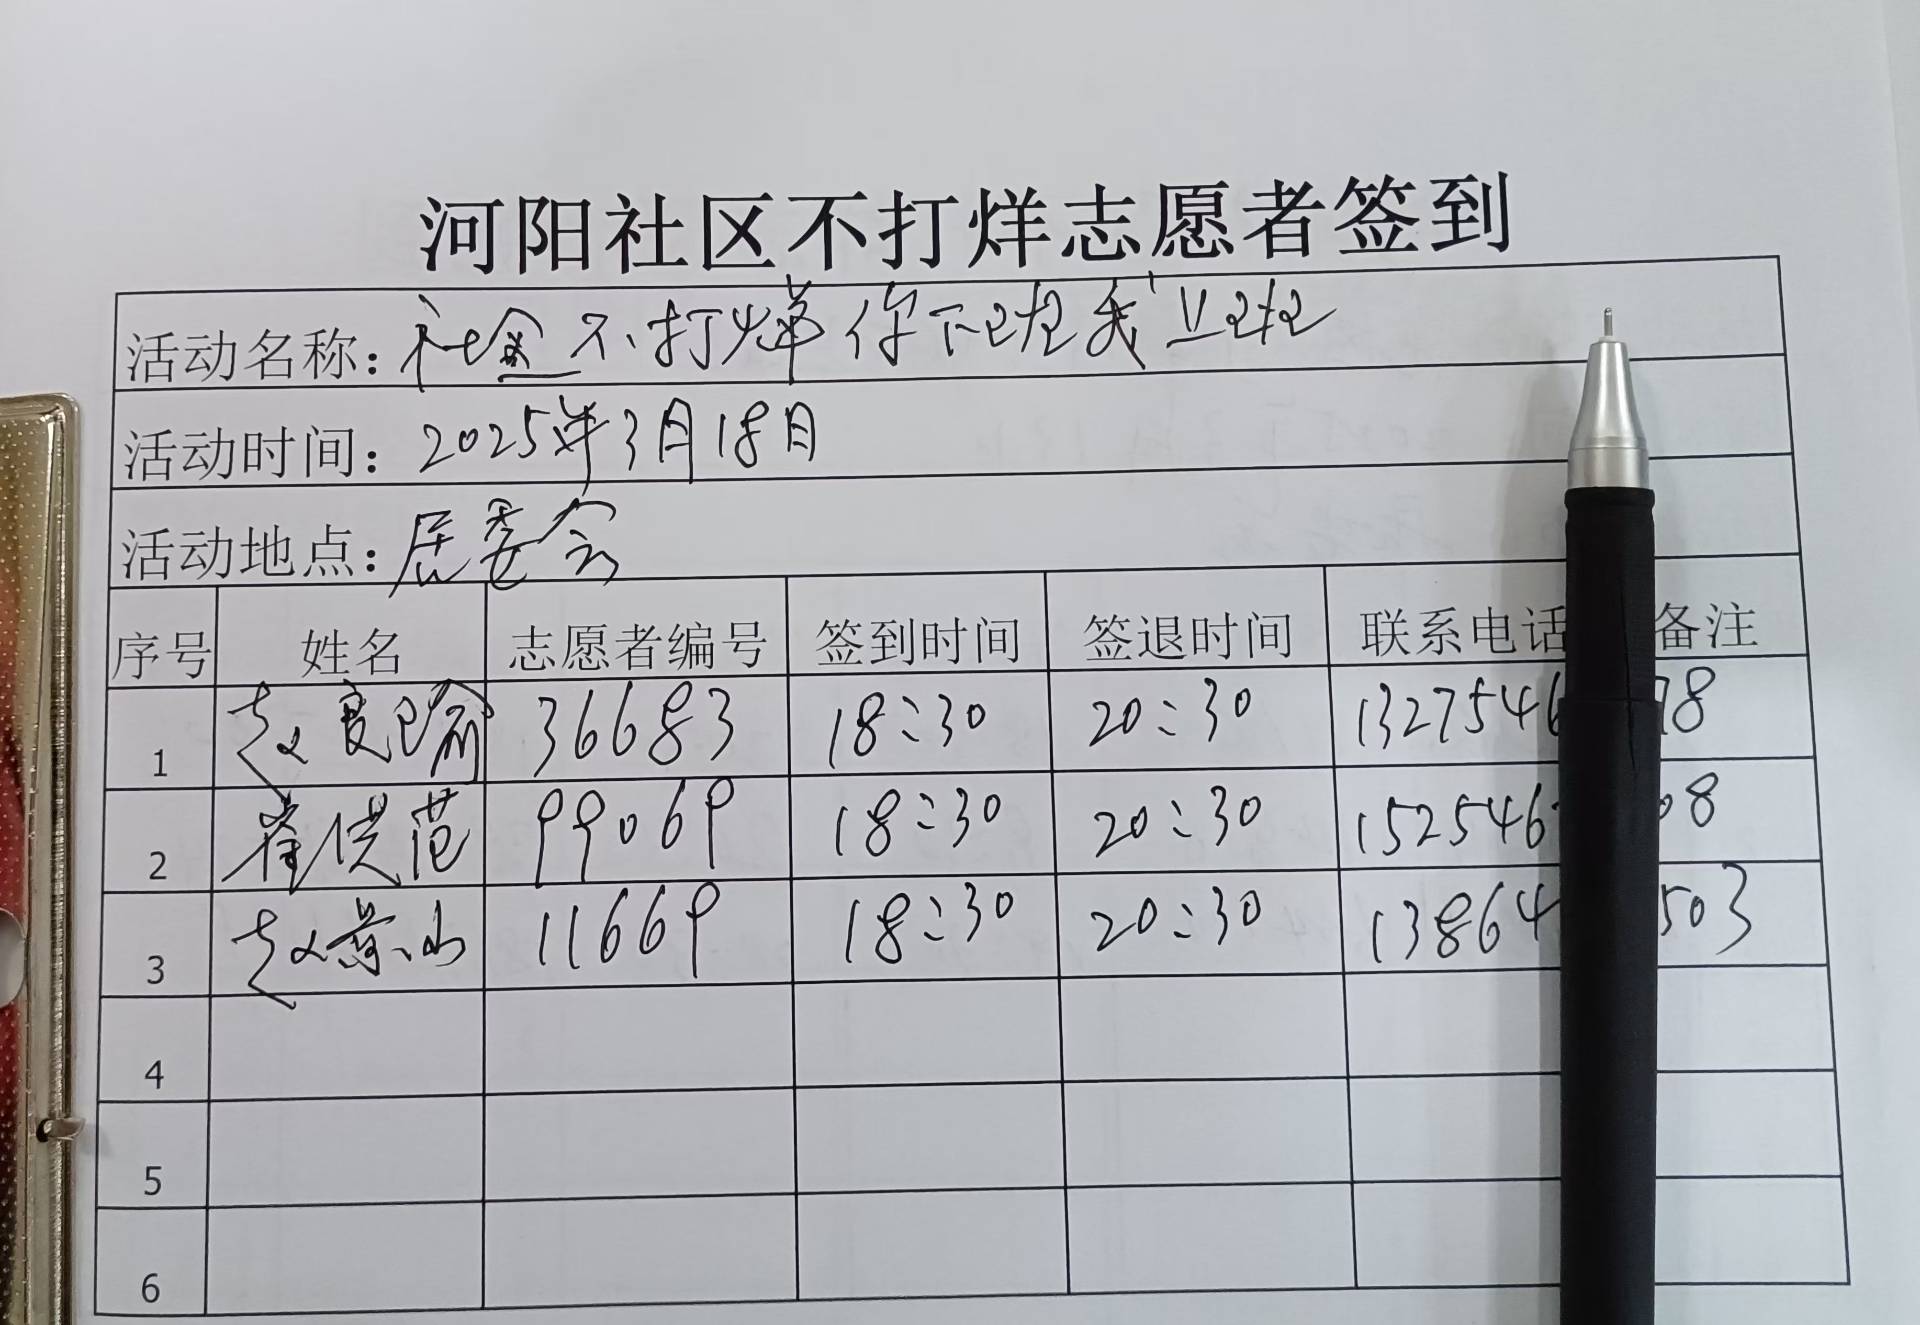 河阳社区不打烊志愿者签到
活动名称：社区不打烊 你下班我上班
活动时间：2025年3月18日
活动地点：居委会
序号 姓名 志愿者编号 签到时间 签退时间 联系电话 备注
1 赵 36683 18:30 20:30 1327546 78
2 崔洪范 99069 18:30 20:30 152546 08
3 赵景山 11669 18:30 20:30 13864 503
4
5
6